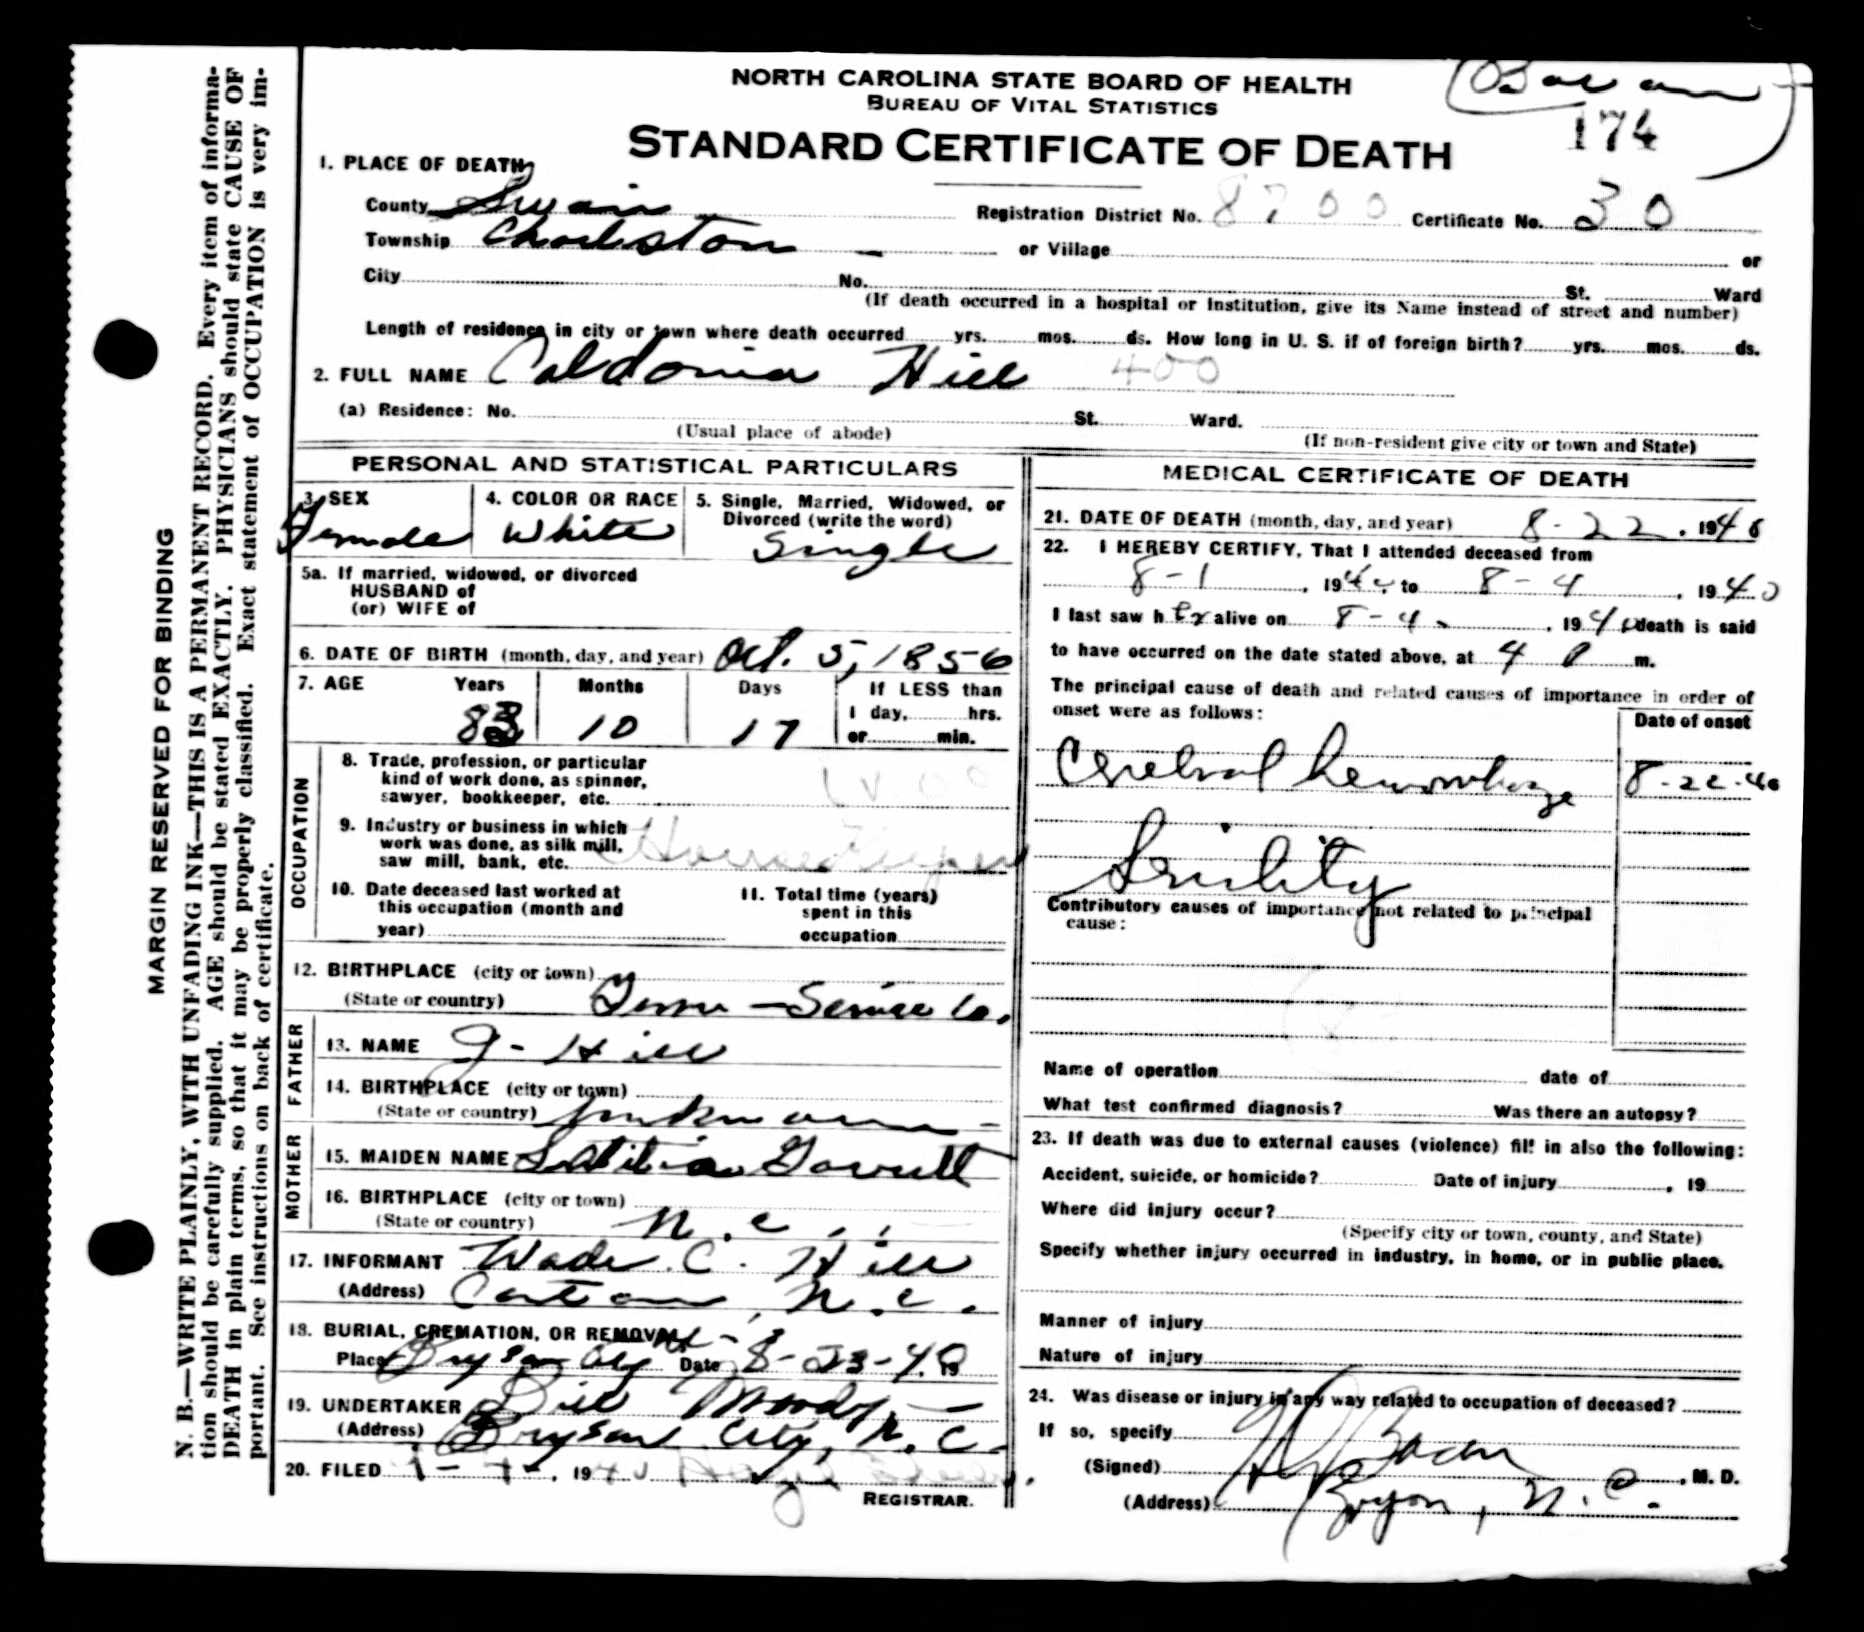 NORTH CAROLINA STATE BOARD OF HEALTH
BUREAU OF VITAL STATISTICS
STANDARD CERTIFICATE OF DEATH
174
1. PLACE OF DEATH
County Swain Registration District No. 8700 Certificate No. 30
Township Charleston — or Village or
City No. St. Ward
(If death occurred in a hospital or Institution, give its Name instead of street and number)
Length of residence in city or town where death occurred yrs. mos. ds. How long in U. S. if of foreign birth? yrs. mos. ds.
2. FULL NAME Caldonia Hill 400
(a) Residence: No. St. Ward.
(Usual place of abode) (If non-resident give city or town and State)
PERSONAL AND STATISTICAL PARTICULARS
3. SEX 4. COLOR OR RACE 5. Single, Married, Widowed, or
Divorced (write the word)
Female White Single
5a. If married, widowed, or divorced
HUSBAND of
(or) WIFE of
6. DATE OF BIRTH (month, day, and year) Oct. 5, 1856
7. AGE Years Months Days If LESS than
1 day, hrs.
83 10 17 or min.
OCCUPATION
8. Trade, profession, or particular
kind of work done, as spinner,
sawyer, bookkeeper, etc.
9. Industry or business in which
work was done, as silk mill,
saw mill, bank, etc. Housekeeper
10. Date deceased last worked at
this occupation (month and
year)
11. Total time (years)
spent in this
occupation
12. BIRTHPLACE (city or town)
(State or country) Tenn — Sevier Co.
FATHER
13. NAME J - Hill
14. BIRTHPLACE (city or town)
(State or country) unknown -
MOTHER
15. MAIDEN NAME
16. BIRTHPLACE (city or town)
(State or country) N. C.
17. INFORMANT Wade C. Hill
(Address) N. C.
18. BURIAL, CREMATION, OR REMOVAL
Place Bryson City Date 8-23-40
19. UNDERTAKER Bill Moody
(Address) Bryson City, N. C.
20. FILED 1940
REGISTRAR.
MEDICAL CERTIFICATE OF DEATH
21. DATE OF DEATH (month, day, and year) 8-22, 1940
22. I HEREBY CERTIFY, That I attended deceased from
8-1, 1940, to 8-4, 1940
I last saw her alive on 8-4, 1940, death is said
to have occurred on the date stated above, at 4 P m.
The principal cause of death and related causes of importance in order of
onset were as follows:
Date of onset
Cerebral hemorrhage 8-22-40
Senility
Contributory causes of importance not related to principal
cause:
Name of operation date of
What test confirmed diagnosis? Was there an autopsy?
23. If death was due to external causes (violence) fill in also the following:
Accident, suicide, or homicide? Date of injury, 19
Where did injury occur?
(Specify city or town, county, and State)
Specify whether injury occurred in industry, in home, or in public place.
Manner of injury
Nature of injury
24. Was disease or injury in any way related to occupation of deceased?
If so, specify
(Signed) Bacon, M. D.
(Address) Bryson, N. C.
MARGIN RESERVED FOR BINDING
N. B.—WRITE PLAINLY, WITH UNFADING INK—THIS IS A PERMANENT RECORD. Every item of informa-
tion should be carefully supplied. AGE should be stated EXACTLY. PHYSICIANS should state CAUSE OF
DEATH in plain terms, so that it may be properly classified. Exact statement of OCCUPATION is very im-
portant. See instructions on back of certificate.